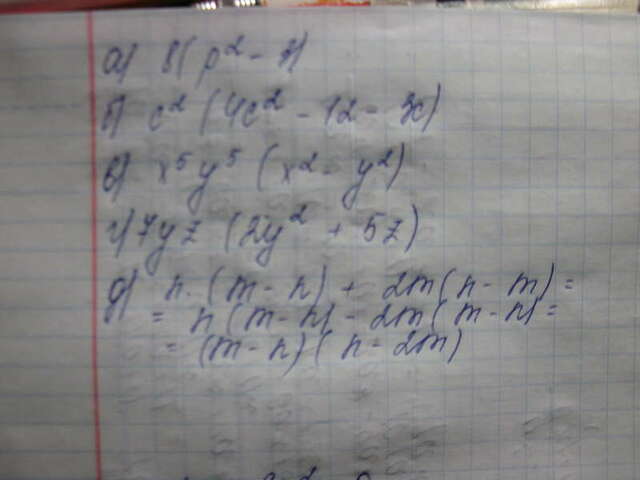 а) 8(p² - 7)
б) c² (4c² - 12 - 3c)
в) x⁵y⁵ (x² - y²)
г) 7yz (2y² + 5z)
д) n · (m - n) + 2m(n - m) =
= n(m - n) - 2m(m - n) =
= (m - n)(n - 2m)